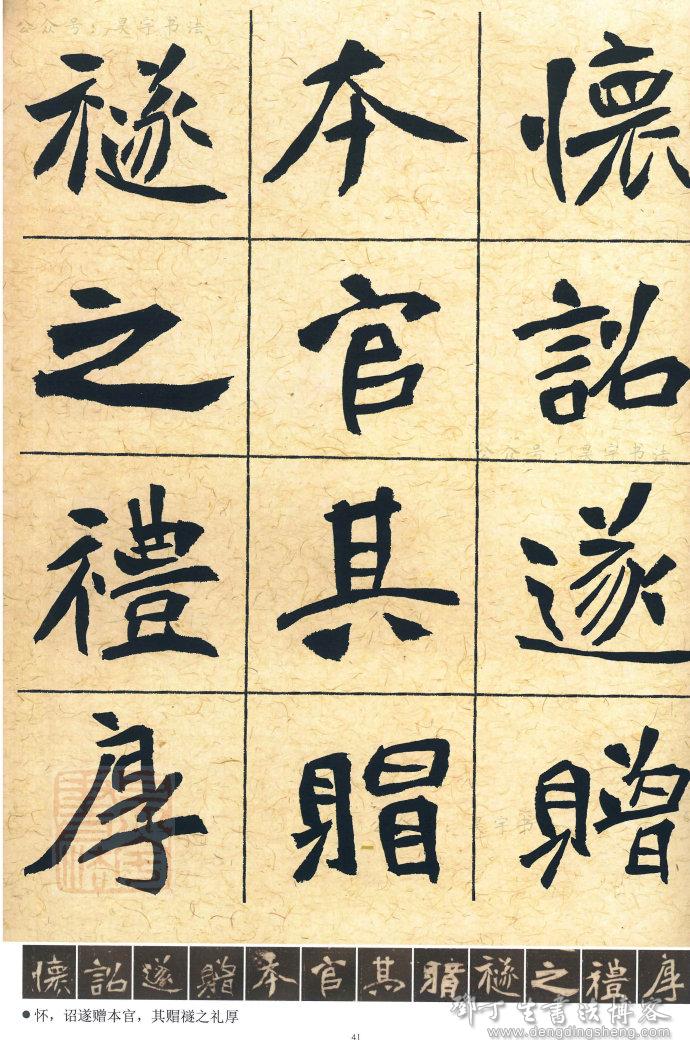 公众号：昊宇书法
懷詔遂贈
本官其賵
襚之禮厚
公众号：昊宇书法
懷詔遂贈本官其賵襚之禮厚
●怀，诏遂赠本官，其赗襚之礼厚
邓丁生书法博客
www.dengdingsheng.com
41